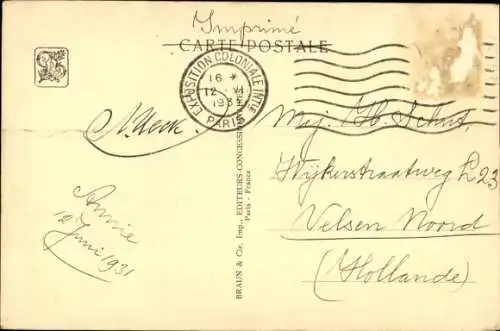 Imprimé
CARTE POSTALE
EXPOSITION COLONIALE INTLE
16 *
12 VI
1931
PARIS
Annie
12 Juni 1931
BRAUN & Cie, Imp., EDITEURS-CONCESSIONNAIRES
Paris - France
Mej. Schut,
Wijkerstraatweg 23
Velsen Noord
(Hollande)